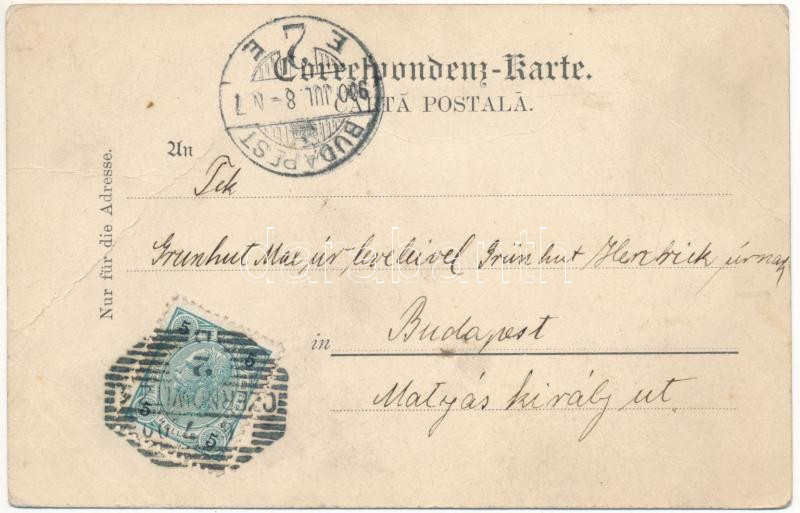 Correspondenz-Karte.
CARTĂ POSTALĂ.
BUDAPEST
900 JUL. - 8 - N 7
E 2 E
Nur für die Adresse.
An
Tek
Grünhut Max úr leveleivel Grünhut Henrick úrnak
in
Budapest
Matyás király ut.
5 5
5 5
HELLER
CZERNOWI
2
darabanth